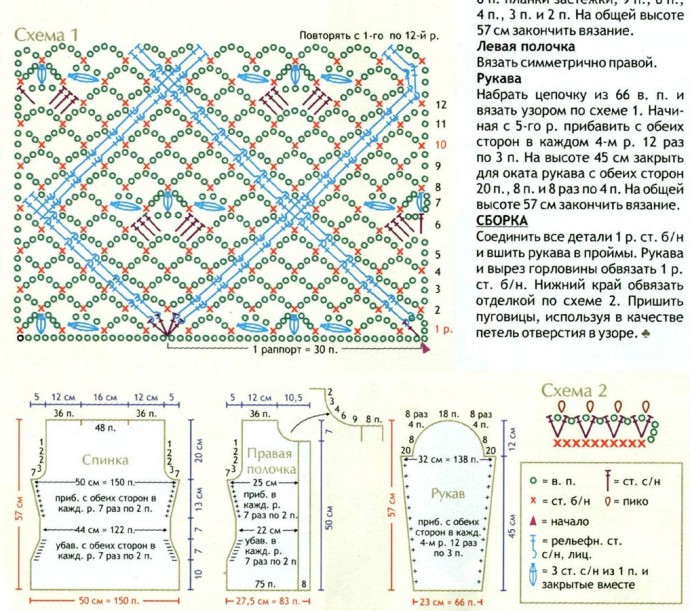 8 п. планки застежки, 9 п., 6 п.,
4 п., 3 п. и 2 п. На общей высоте
57 см закончить вязание.
Левая полочка
Вязать симметрично правой.
Рукава
Набрать цепочку из 66 в. п. и
вязать узором по схеме 1. Начи-
ная с 5-го р. прибавить с обеих
сторон в каждом 4-м р. 12 раз
по 3 п. На высоте 45 см закрыть
для оката рукава с обеих сторон
20 п., 8 п. и 8 раз по 4 п. На общей
высоте 57 см закончить вязание.
СБОРКА
Соединить все детали 1 р. ст. б/н
и вшить рукава в проймы. Рукава
и вырез горловины обвязать 1 р.
ст. б/н. Нижний край обвязать
отделкой по схеме 2. Пришить
пуговицы, используя в качестве
петель отверстия в узоре.
Схема 1
Повторять с 1-го по 12-й р.
12
11
10
9
8
7
6
5
4
3
2
1 р.
1 раппорт = 30 п.
5 12 см 16 см 12 см 5
36 п. 36 п.
48 п.
1
2
2
3
7
1
2
2
3
7
Спинка
50 см = 150 п.
приб. с обеих сторон в
кажд. р. 7 раз по 2 п.
44 см = 122 п.
убав. с обеих сторон в
кажд. р. 7 раз по 2 п.
50 см = 150 п.
57 см
20 см
13 см
7
7
10
5 12 см 10,5
36 п.
2
3
4
6
9
8 п.
7
1
2
2
3
7
Правая
полочка
25 см
приб. в
кажд. р.
7 раз по 2 п.
22 см
убав. в
кажд. р.
7 раз по 2 п
75 п. 8
27,5 см = 83 п.
50 см
8 раз
4 п.
18 п.
8 раз
4 п.
8
20
8
20
32 см = 138 п.
Рукав
приб. с обеих
сторон в кажд.
4-м р. 12 раз
по 3 п.
23 см = 66 п.
57 см
12 см
45 см
Схема 2
= в. п.
= ст. с/н
= ст. б/н
= пико
= начало
= рельефн. ст.
с/н, лиц.
= 3 ст. с/н из 1 п. и
закрытые вместе